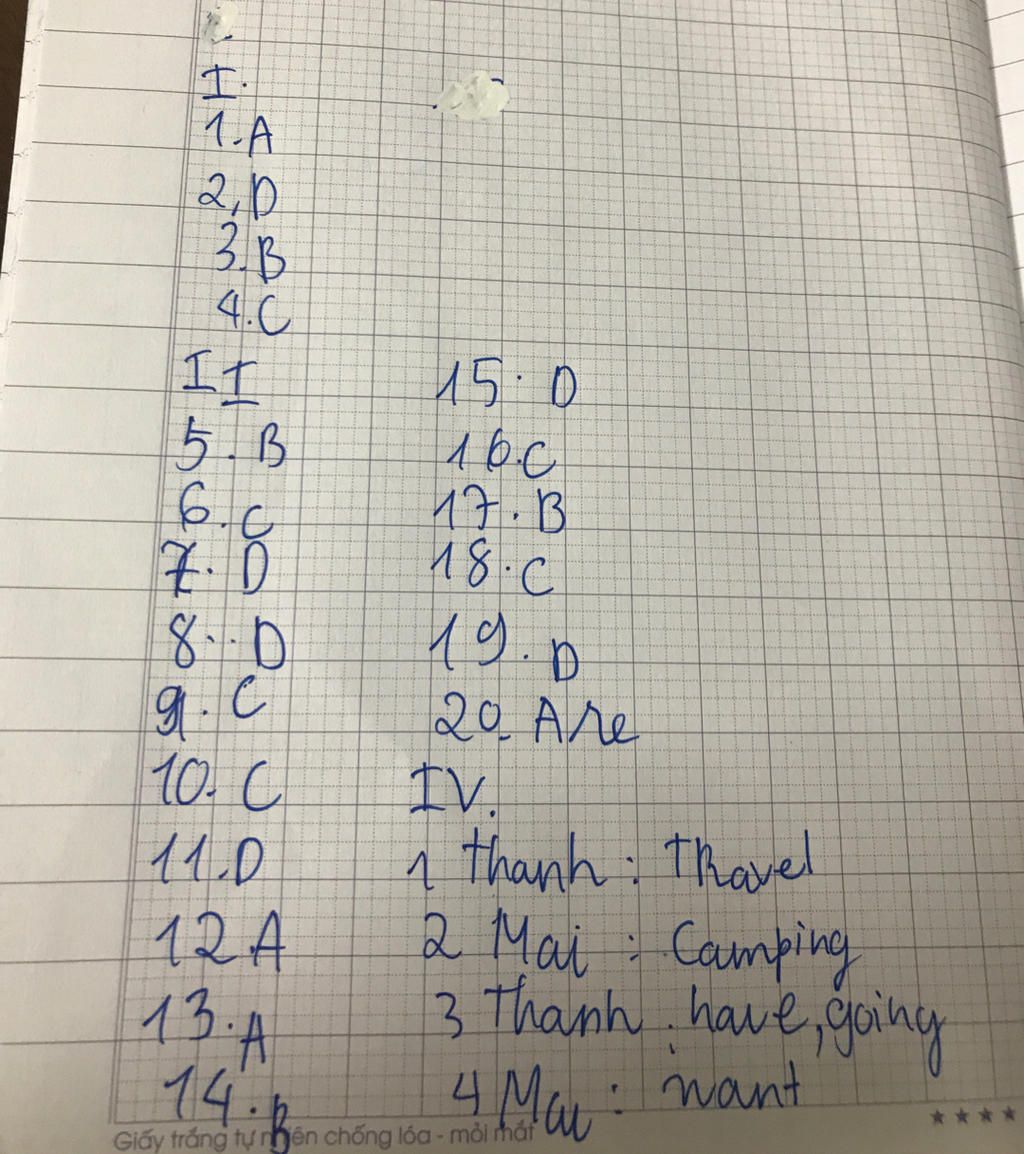 I.
1. A
2, D
3. B
4. C
II
5. B
6. C
7. D
8. D
9. C
10. C
11. D
12 A
13. A
14. B
15. D
16. C
17. B
18. C
19. D
20. Are
IV.
1 Thanh : Travel
2 Mai : Camping
3 Thanh : have, going
4 Mai : want
Giấy trắng tự nhiên chống lóa - mỏi mắt